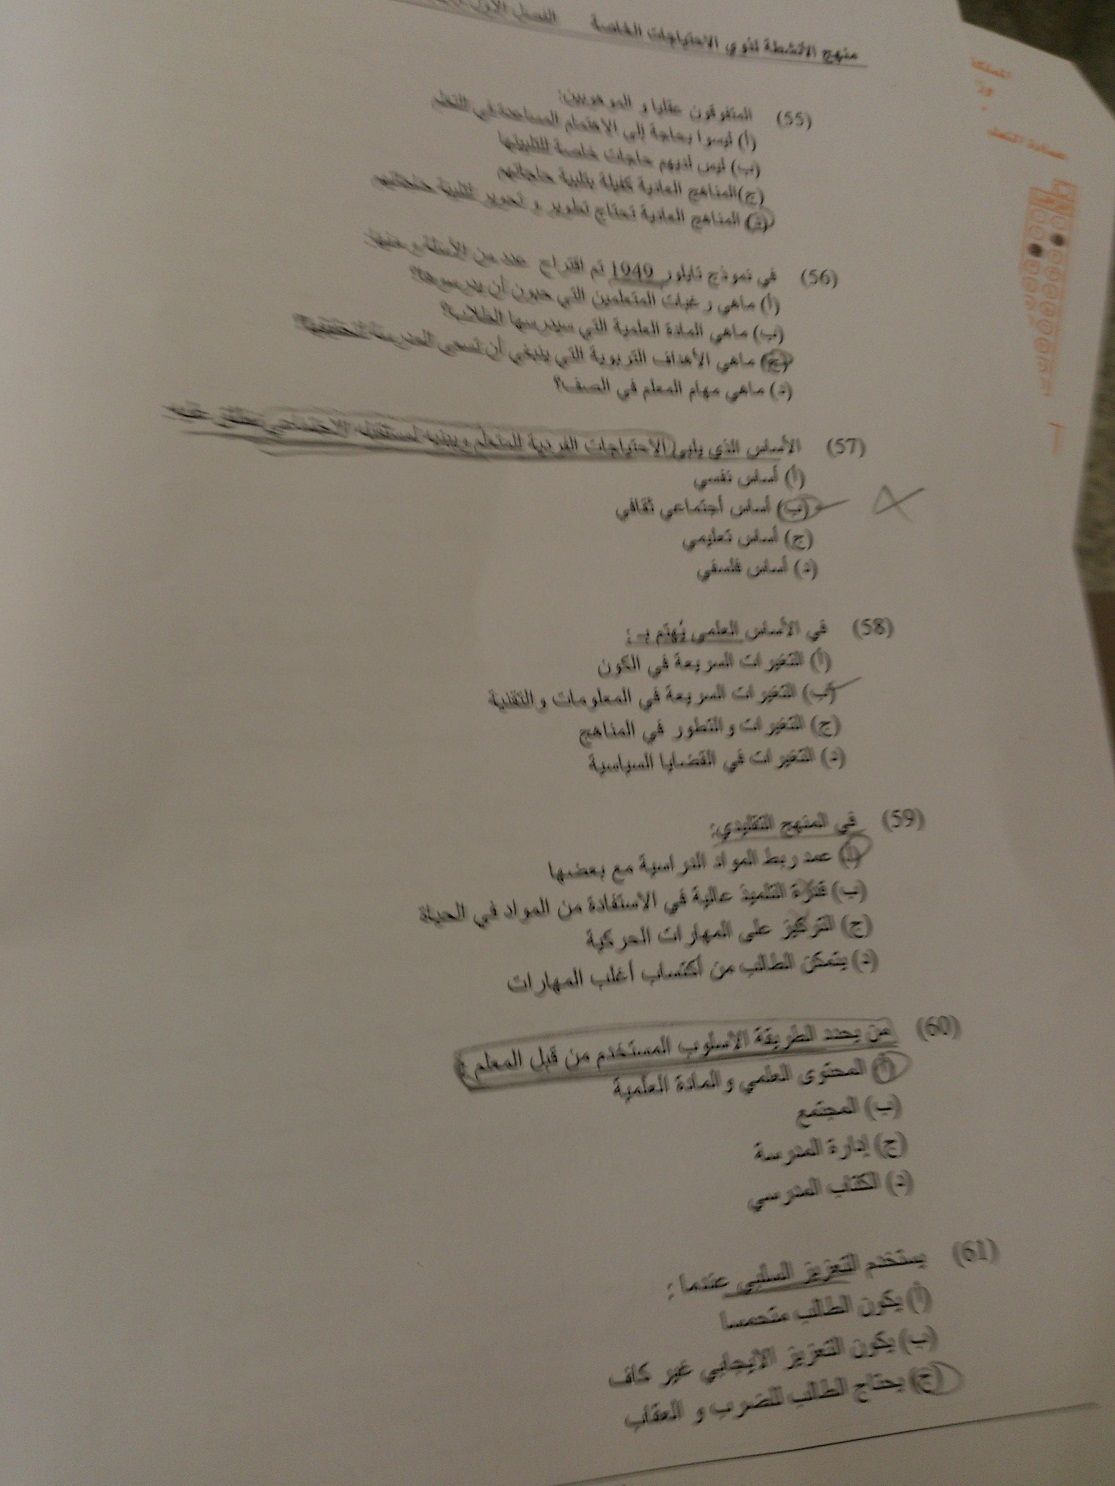 منهج الأنشطة لذوي الاحتياجات الخاصة الفصل الأول
(55) المتفوقون عقليا و الموهوبين:
(أ) ليسوا بحاجة إلى الاهتمام المساعدة في التعلم
(ب) ليس لديهم حاجات خاصة لتلبيتها
(ج) المناهج العادية كفيلة بتلبية حاجاتهم
(د) المناهج العادية تحتاج تطوير و تحوير لتلبية حاجاتهم
(56) في نموذج تايلور 1949 تم اقتراح عدد من الأسئلة منها:
(أ) ماهي رغبات المتعلمين التي يحبون أن يدرسوها؟
(ب) ماهي المادة العلمية التي سيدرسها الطلاب؟
(ج) ماهي الأهداف التربوية التي ينبغي أن تسعى المدرسة لتحقيقها؟
(د) ماهي مهام المعلم في الصف؟
(57) الأساس الذي يلبي الاحتياجات الفردية للمتعلم
(أ) أساس نفسي
(ب) أساس أجتماعي ثقافي
(ج) أساس تعليمي
(د) أساس فلسفي
(58) في الأساس العلمي يُهتم بـ :
(أ) التغيرات السريعة في الكون
(ب) التغيرات السريعة في المعلومات والتقنية
(ج) التغيرات والتطور في المناهج
(د) التغيرات في القضايا السياسية
(59) في المنهج التقليدي:
(أ) عمد ربط المواد الدراسية مع بعضها
(ب) قدرة التلميذ عالية في الاستفادة من المواد في الحياة
(ج) التركيز على المهارات الحركية
(د) يتمكن الطالب من أكتساب أغلب المهارات
(60) من يحدد الطريقة الأسلوب المستخدم من قبل المعلم :
(أ) المحتوى العلمي والمادة العلمية
(ب) المجتمع
(ج) إدارة المدرسة
(د) الكتاب المدرسي
(61) يستخدم التعزيز السلبي عندما :
(أ) يكون الطالب متحمسا
(ب) يكون التعزيز الأيجابي غير كاف
(ج) يحتاج الطالب للضرب و العقاب